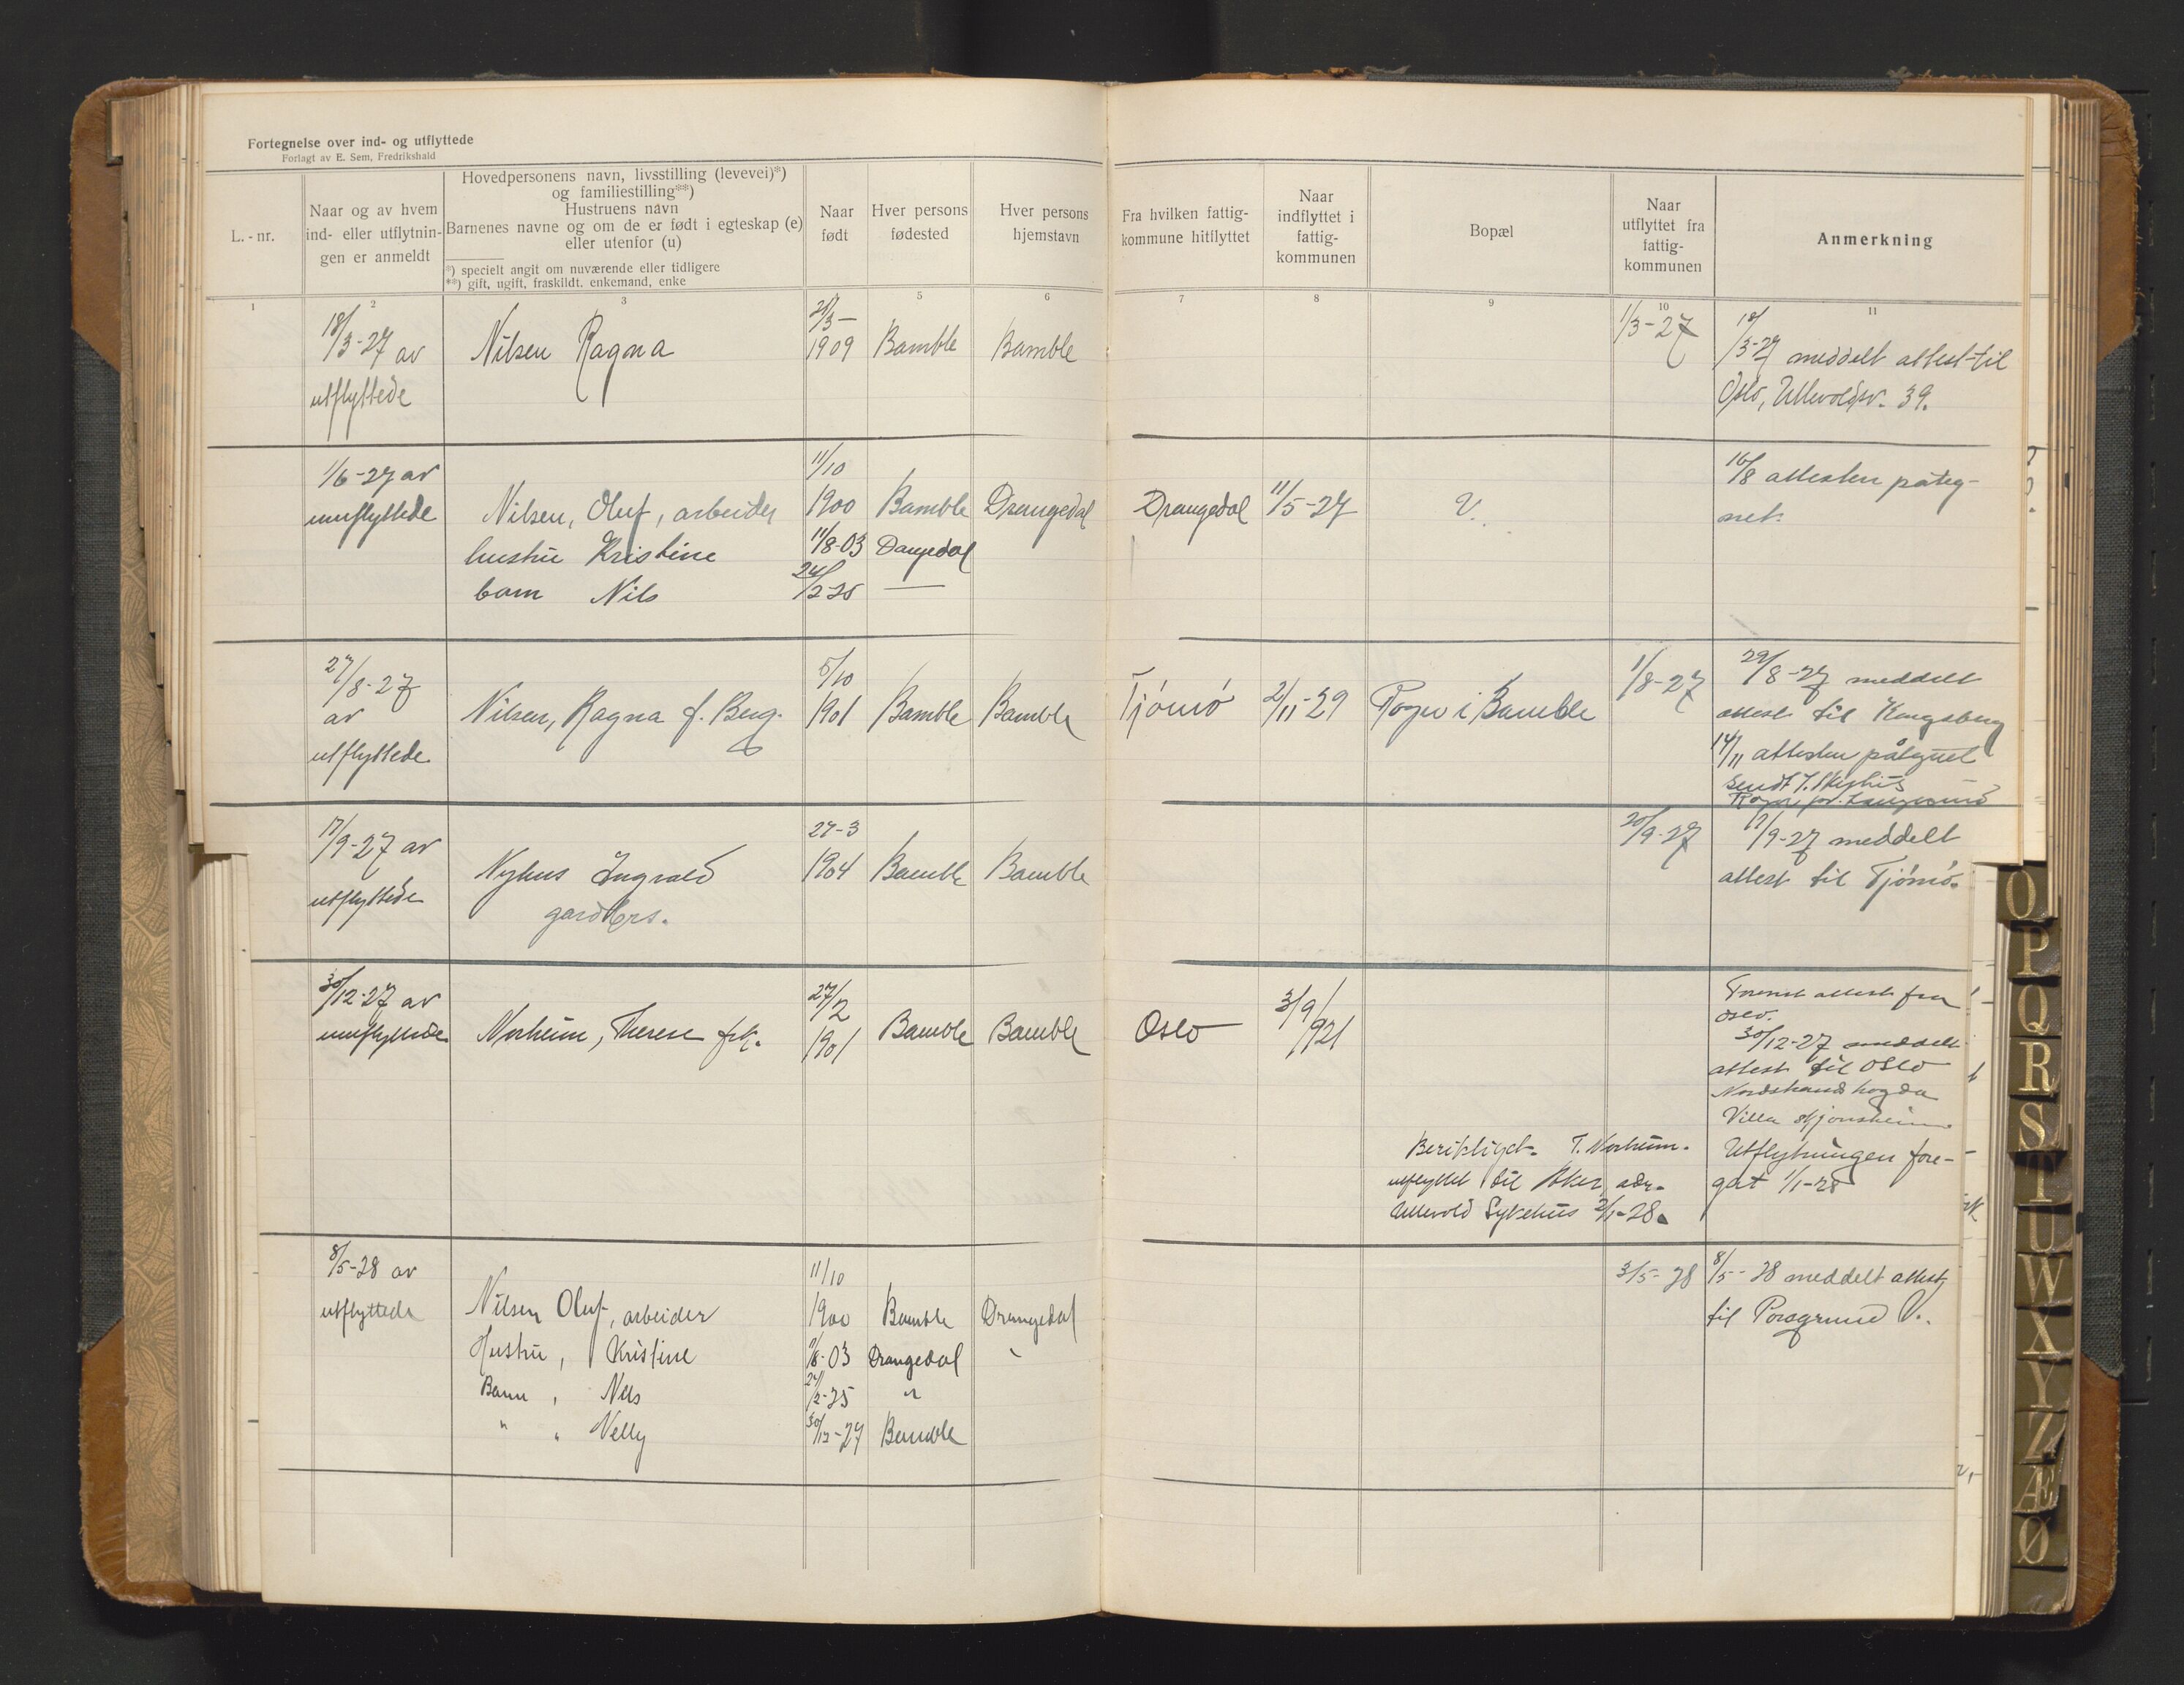 Fortegnelse over ind- og utflyttede
Forlagt av E. Sem, Fredrikshald
L.-nr.
Naar og av hvem
ind- eller utflytnin-
gen er anmeldt
Hovedpersonens navn, livsstilling (levevei)*)
og familiestilling**)
Hustruens navn
Barnenes navne og om de er født i egteskap (e)
eller utenfor (u)
*) specielt angit om nuværende eller tidligere
**) gift, ugift, fraskildt, enkemand, enke
Naar
født
Hver persons
fødested
Hver persons
hjemstavn
Fra hvilken fattig-
kommune hitflyttet
Naar
indflyttet i
fattig-
kommunen
Bopæl
Naar
utflyttet fra
fattig-
kommunen
Anmerkning
1 2 3 5 6 7 8 9 10 11
18/3-27 av
utflyttede
Nilsen Ragna
/3-
1909
Bamble
Bamble
1/3-27
18/3-27 meddelt attest til
Oslo, Ullevoldsv. 39.
1/6-27 av
innflyttede
Nilsen, Oluf, arbeider
hustru Kristine
barn Nils
11/10
1900
11/8-03
24/2-25
Bamble
Drangedal
—
Drangedal
Drangedal
11/5-27
V.
16/8 attesten påteg-
net.
27/8-27
av
utflyttede
Nilsen, Ragna f. Berg.
5/10
1901
Bamble
Bamble
Tjømø
2/11-29
Rogn i Bamble
1/8-27
29/8-27 meddelt
attest til Kongsberg
14/11 attesten påtegnet
sendt
Rogn, pr. Langesund
17/9-27 av
utflyttede
Nyhus Ingvald
gardbrs.
27-3
1904
Bamble
Bamble
20/9-27
17/9-27 meddelt
attest til Tjømø.
30/12-27 av
innflyttede
Norheim, Therese frk.
27/2
1901
Bamble
Bamble
Oslo
3/9/921
attest fra
Oslo.
30/12-27 meddelt
attest til Oslo
Nordstrandshøgda
Villa
Utflytningen fore-
gåt 1/1-28
Beriktiget. T. Norheim.
utflyttet til Aker, adr.
Ullevold Sykehus 2/1-28.
8/5-28 av
utflyttede
Nilsen Oluf, arbeider
Hustru, Kristine
Barn, Nils
" " Nelly
11/10
1900
11/8-03
24/2-25
30/12-27
Bamble
Drangedal
"
Bamble
Drangedal
"
3/5-28
8/5-28 meddelt attest
til Porsgrund V.
O
P
Q
R
S
T
U
W
X
Y
Z
Æ
Ø